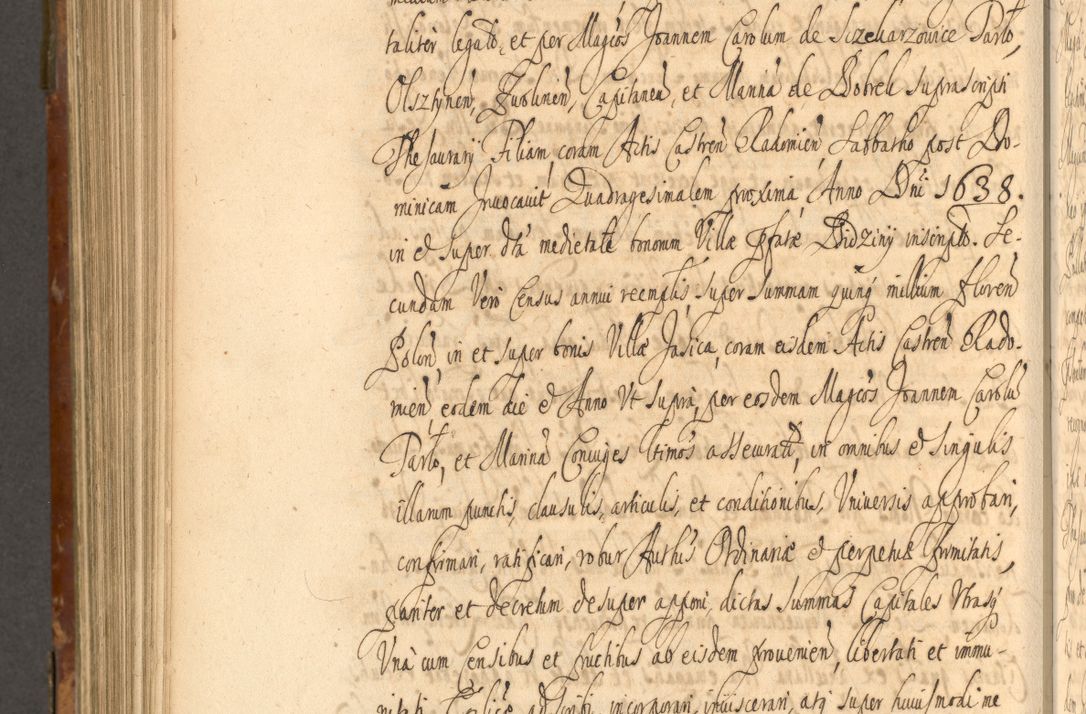 taliter legato, et per Magcos Joannem Carolum de Sczekarzowice Tarło,
Olsztÿnen, Zwolinen, Capitaneu, et Manna de Bobrek suprascripti
Thesaurarÿ Filiam coram Actis Castren Radomien Sabbatho post Do-
minicam Invocavit Quadragesimalem proxima Anno Dni 1638.
in et super dta medietate bonorum Villæ pfatæ Bidzinÿ inscripto. Se-
cundam Vero Census annui reemptis super Summam quinq millium floren
Polon, in et super bonis Villæ Jasica, coram eisdem Actis Castren Rado-
mien eodem die et Anno Ut supra, per eosdem Magcos Joannem Carolu
Tarło, et Marina Coniuges ltimos assecurat, in omnibus et singulis
illarum punctis, clausulis, articulis, et conditionibus, Universis approbari,
confirmari, ratificari, robur Autthis Ordinariæ et perpetuæ firmitatis,
pariter et decretum desuper apponi, dictas Summas Capitales Utrasq
Una cum Censibus et fructibus ab eisdem provenien, libertati et immu-
nitati adscribi, incorporari, inviscerari, atq super huiusmodi me